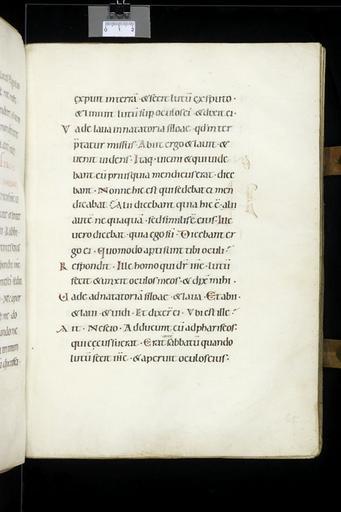 expuit interrā · & fecit lutū ex sputo ·
& linuit lutū sup oculos ei · & dixit ei ·
Vade laua in natatoria siloae · qđ inter
p̄tatur missus · Abiit ergo & lauit · &
uenit uidens · Itaq; uicini & qui uide
bant eū prius quia mendicus erat · dice
bant · Nonne hic est qui sedebat & men
dicabat · Alii dicebant quia hic ē · alii
autē nequaquā · sed similis ē eius · Ille
uero dicebat · quia ego sū · Dicebant er
go ei · Quomodo aperti sunt tibi oculi
Respondit · Ille homo qui dr̄ ihc̄ · lutū
fecit & unxit oculos meos · & dix̄ mihi ·
Uade ad natatoriā siloae · & laua · Et abii ·
& laui · & uidi · Et dixer̄ ei · Vbi est ille
Ait · Nescio · Adducunt eū ad phariseos ·
qui cęcus fuerat · Erat sabbatū quando
lutū fecit ihc̄ · & aperuit oculos eius ·